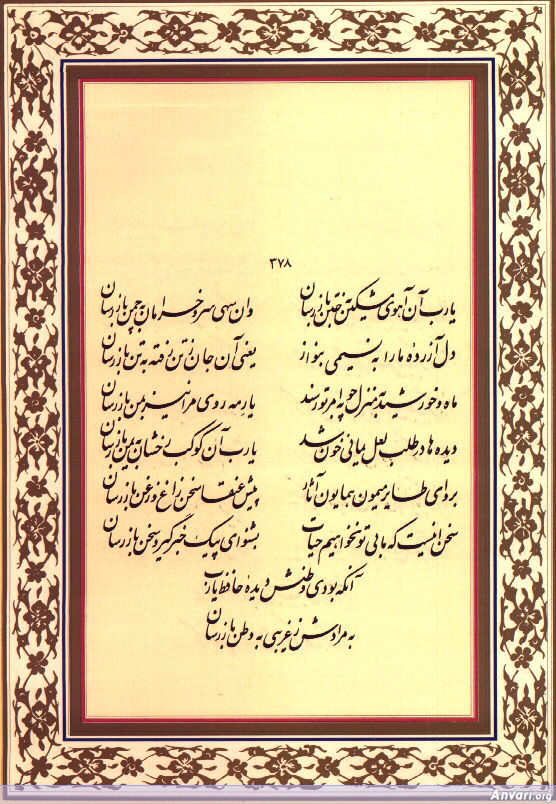 ۳۷۸
یارب آن آهوی مشکین به ختن بازرسان وان سهی سرو خرامان به چمن بازرسان
دل آزردهٔ ما را به نسیمی بنواز یعنی آن جان ز تن رفته به تن بازرسان
ماه و خورشید به منزل چو به امر تو رسند یار مه روی مرا نیز به من بازرسان
دیده‌ها در طلب لعل یمانی خون شد یارب آن کوکب رخشان به یمن بازرسان
برو ای طایر میمون همایون آثار پیش عنقا سخن زاغ و زغن بازرسان
سخن اینست که ما بی تو نخواهیم حیات بشنو ای پیک خبر گیر و سخن بازرسان
آنکه بودی وطنش دیدهٔ حافظ یارب
به مرادش ز غریبی به وطن بازرسان
Anvari.org